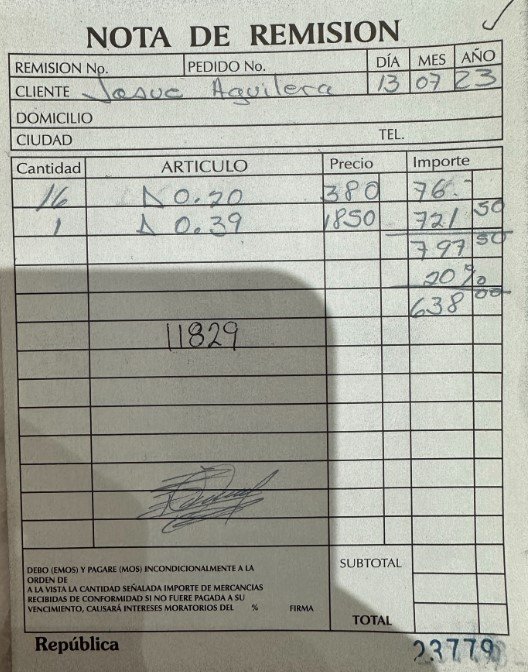 NOTA DE REMISION
REMISION No. PEDIDO No. DÍA MES AÑO
CLIENTE Josue Aguilera 13 07 23
DOMICILIO
CIUDAD TEL.
Cantidad ARTICULO Precio Importe
16 Δ 0.20 380 76.-
1 Δ 0.39 1850 721 50
797 50
20%
638 00
11829
DEBO (EMOS) Y PAGARE (MOS) INCONDICIONALMENTE A LA
ORDEN DE
A LA VISTA LA CANTIDAD SEÑALADA IMPORTE DE MERCANCIAS
RECIBIDAS DE CONFORMIDAD SI NO FUERE PAGADA A SU
VENCIMIENTO, CAUSARÁ INTERESES MORATORIOS DEL % FIRMA
SUBTOTAL
TOTAL
República 23779